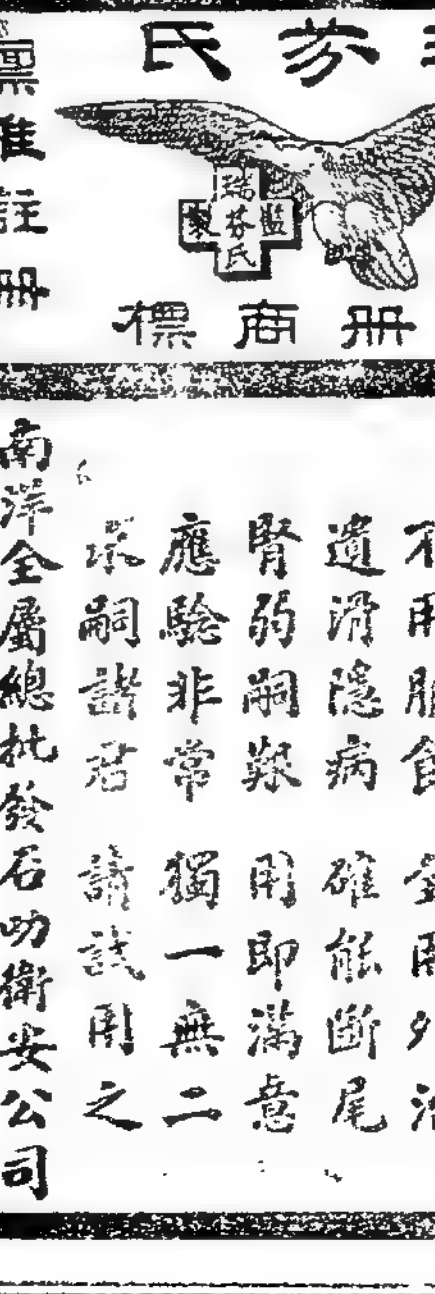 芬氏
瑞芬氏
監
冊商標
稟准註冊
不用服食
遺滑隱病 確能斷尾
腎弱嗣艱 用即滿意
應驗非常 獨一無二
求嗣諸君 請試用之
南洋全屬總批發石叻衛安公司